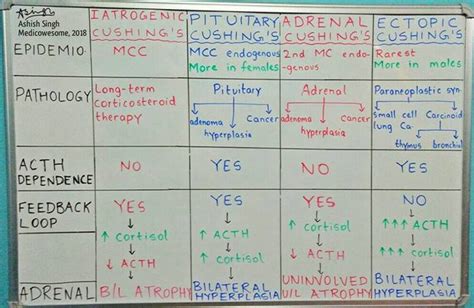 Ashish Singh
Medicowesome, 2018
IATROGENIC CUSHING'S
PITUITARY CUSHING'S
ADRENAL CUSHING'S
ECTOPIC CUSHING'S
EPIDEMIO
MCC
MCC endogenous
More in females
2nd MC endo-
genous
Rarest
More in males
PATHOLOGY
Long-term
corticosteroid
therapy
Pituitary
adenoma
hyperplasia
Cancer
Adrenal
adenoma
hyperplasia
Cancer
Paraneoplastic syn-
small cell
lung Ca
Carcinoid
thymus bronchial
ACTH
DEPENDENCE
NO
YES
NO
YES
FEEDBACK
LOOP
YES
↓
↑ cortisol
↓
↓ ACTH
↓
YES
↓
↑ ACTH
↓
↑ cortisol
↓
YES
↓
↑ cortisol
↓
↓ ACTH
↓
NO
↓
↑↑↑ ACTH
↓
↑ cortisol
↓
ADRENAL
B/L ATROPHY
BILATERAL
HYPERPLASIA
UNINVOLVED
U/L ATROPHY
BILATERAL
HYPERPLASIA